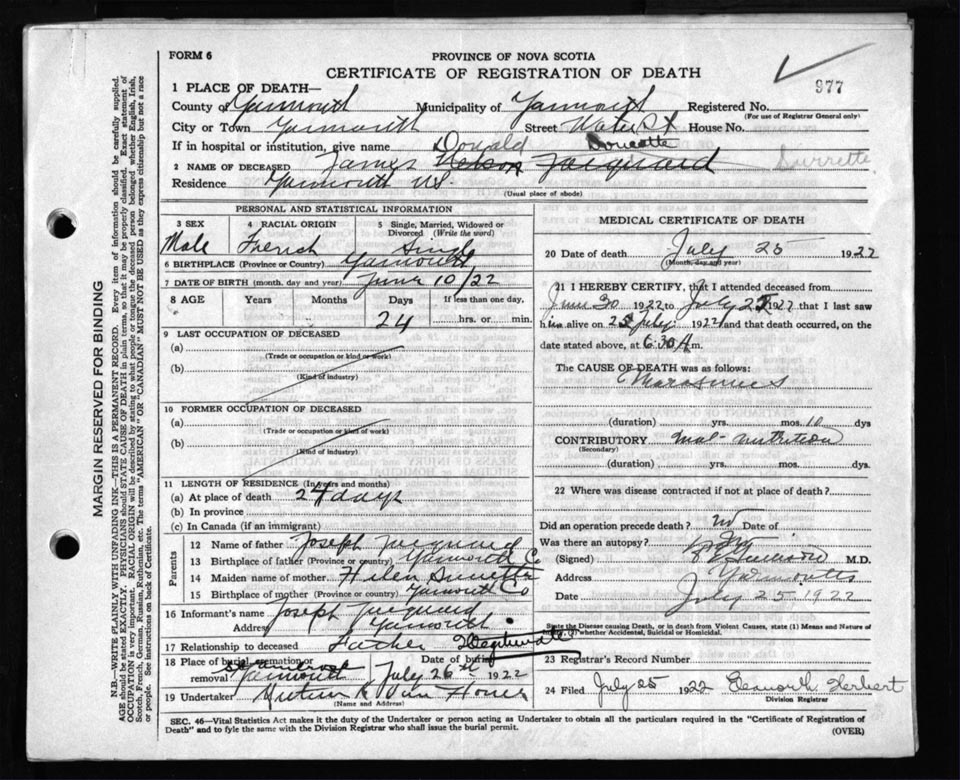 FORM 6
PROVINCE OF NOVA SCOTIA
CERTIFICATE OF REGISTRATION OF DEATH
977
1 PLACE OF DEATH—
County of Yarmouth Municipality of Yarmouth Registered No.
(For use of Registrar General only)
City or Town Yarmouth Street Water St House No.
If in hospital or institution, give name
Donald Doucette
2 NAME OF DECEASED James Nelson Jacquard Surrette
Residence Yarmouth N.S.
(Usual place of abode)
PERSONAL AND STATISTICAL INFORMATION
3 SEX
Male
4 RACIAL ORIGIN
French
5 Single, Married, Widowed or Divorced (Write the word)
Single
6 BIRTHPLACE (Province or Country) Yarmouth
7 DATE OF BIRTH (month, day and year) June 10/22
8 AGE Years Months Days If less than one day,
24 hrs. or min.
9 LAST OCCUPATION OF DECEASED
(a)
(Trade or occupation or kind or work)
(b)
(Kind of industry)
10 FORMER OCCUPATION OF DECEASED
(a)
(Trade or occupation or kind of work)
(b)
(Kind of industry)
11 LENGTH OF RESIDENCE (In years and months)
(a) At place of death 24 days
(b) In province
(c) In Canada (if an immigrant)
Parents
12 Name of father Joseph Jacquard
13 Birthplace of father (Province or country) Yarmouth Co
14 Maiden name of mother Helen Surrette
15 Birthplace of mother (Province or country) Yarmouth Co
16 Informant's name Joseph Jacquard
Address Yarmouth
17 Relationship to deceased Father Illegitimate
18 Place of burial, cremation or removal Yarmouth
Date of burial July 26th 1922
19 Undertaker
(Name and Address)
MEDICAL CERTIFICATE OF DEATH
20 Date of death July 25 1922
(Month, day and year)
21 I HEREBY CERTIFY, that I attended deceased from
June 30 1922 to July 25 1922 that I last saw
him alive on 25 July 1922 and that death occurred, on
date stated above, at 6:30 A m.
The CAUSE OF DEATH was as follows:
Marasmus
(duration) yrs. mos. 10 dys
CONTRIBUTORY Mal-nutrition
(Secondary)
(duration) yrs. mos. dys.
22 Where was disease contracted if not at place of death?
Did an operation precede death? no Date of
Was there an autopsy?
(Signed) M.D.
Address Yarmouth
Date July 25, 1922
State the Disease causing Death, or in death from Violent Causes, state (1) Means and Nature of whether Accidental, Suicidal or Homicidal.
23 Registrar's Record Number
24 Filed July 25 1922 Elsworth Herbert
Division Registrar
SEC. 46—Vital Statistics Act makes it the duty of the Undertaker or person acting as Undertaker to obtain all the particulars required in the "Certificate of Registration of
Death" and to fyle the same with the Division Registrar who shall issue the burial permit.
(OVER)
MARGIN RESERVED FOR BINDING
N.B.—WRITE PLAINLY WITH UNFADING INK—THIS IS A PERMANENT RECORD. Every item of information should be carefully supplied.
AGE should be stated EXACTLY. PHYSICIANS should STATE CAUSE OF DEATH in plain terms, so that it may be properly classified. Exact statement of
OCCUPATION is very important. RACIAL ORIGIN will be described by stating to what people or tongue the deceased person belonged whether English, Irish,
Scotch, French, German, Russian, Ruthenian, etc. The terms "AMERICAN" OR "CANADIAN" MUST NOT BE USED as they express citizenship but not a race
or people. See instructions on back of Certificate.